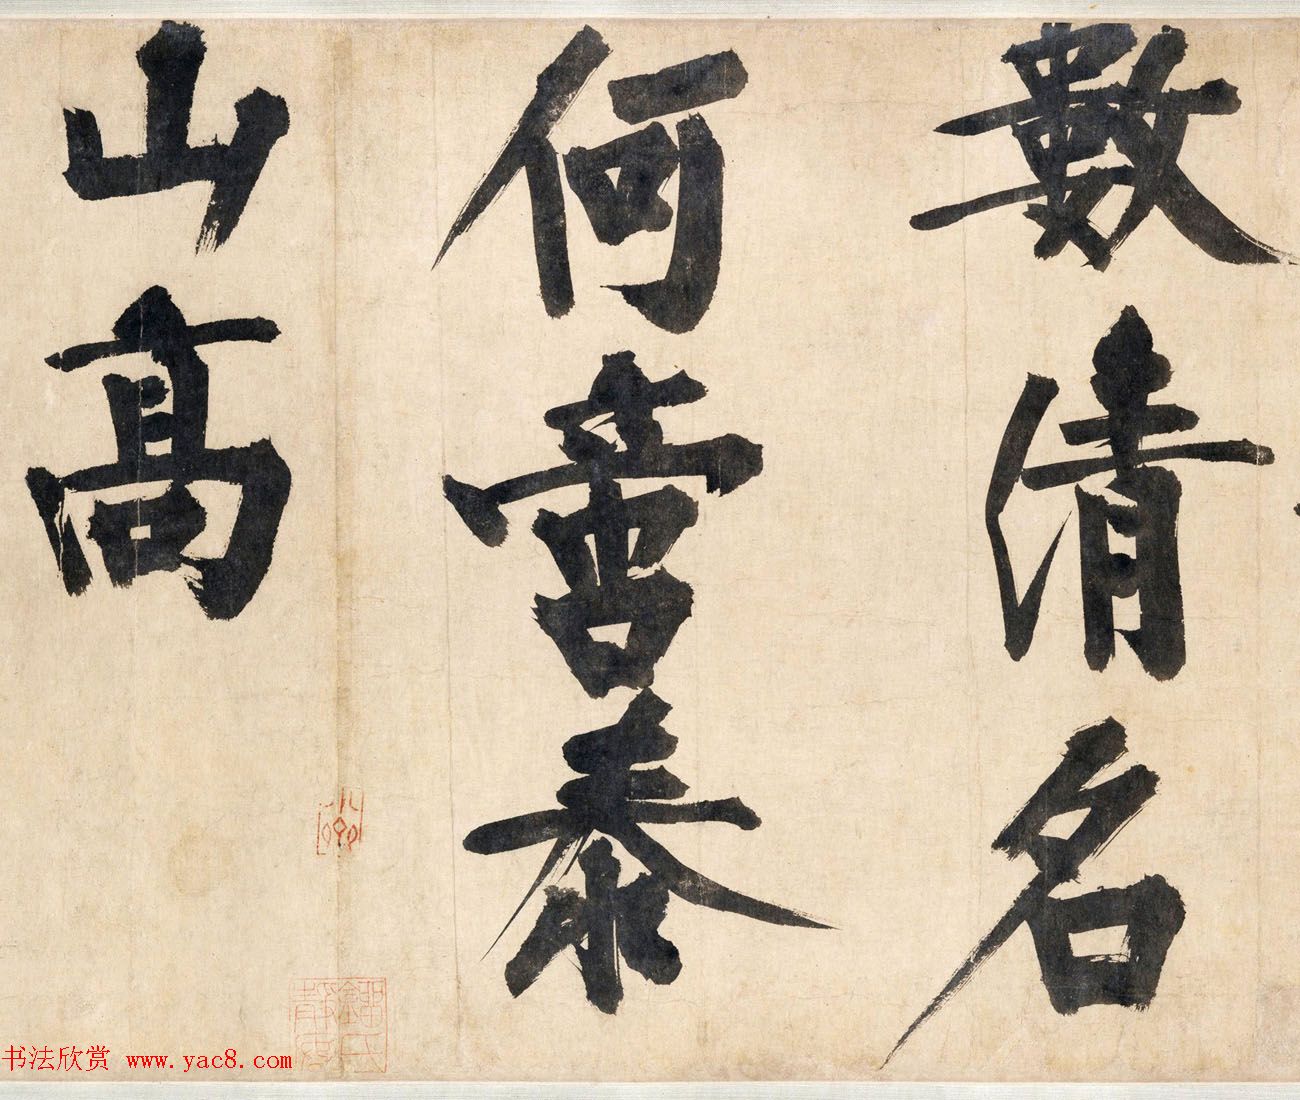 數清名
何啻泰
山高
书法欣赏 www.yac8.com